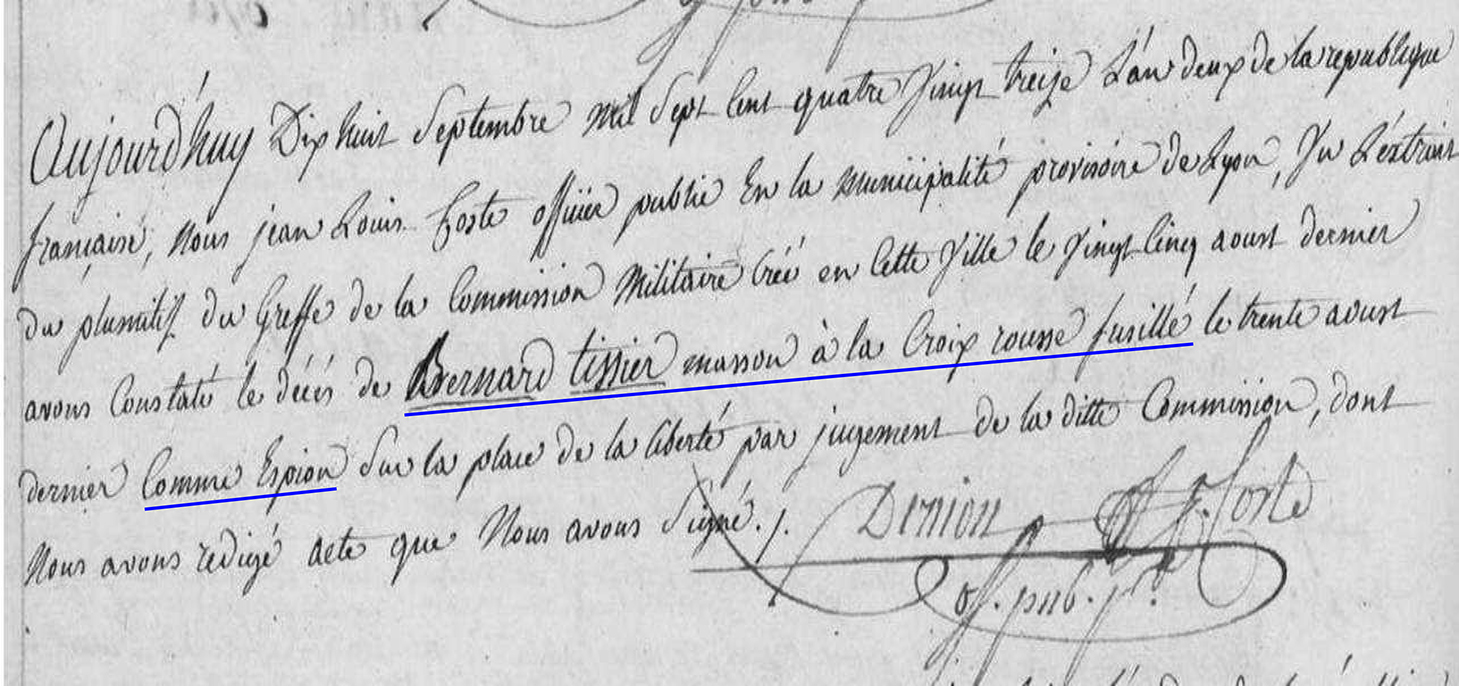 Aujourd'huy Dix huit Septembre mil Sept Cent quatre Vingt treize L'an deux de la republique
française, Nous jean Louis Coste officier public En la municipalité provisoire de Lyon, Vu L'extrait
du plumitif du Greffe de la Commission Militaire Créé en Cette Ville le Vingt Cinq aoust dernier
avons Constaté le décés de Bernard tissier masson à la Croix rousse fusillé le trente aoust
dernier Comme Espion Sur la place de la liberté par jugement de la ditte Commission, dont
Nous avons redigé acte que Nous avons Signé.
Coste
off. pub. p.r